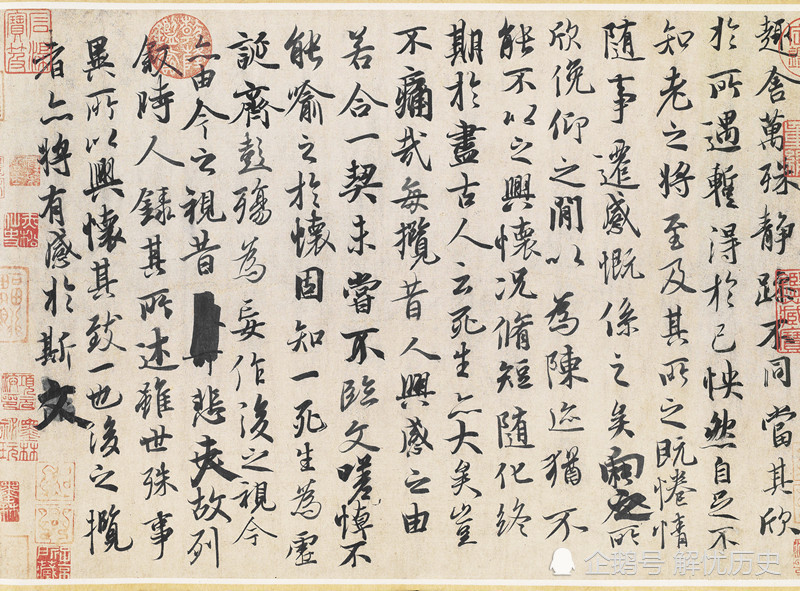 趣舍萬殊静躁不同當其欣
於所遇蹔得於己怏然自足不
知老之将至及其所之既惓情
随事遷感慨係之矣向之所
欣俛仰之閒以為陳迹猶不
能不以之興懷況脩短随化終
期於盡古人云死生亦大矣豈
不痛哉每攬昔人興感之由
若合一契未嘗不臨文嗟悼不
能喻之於懷固知一死生為虛
誕齊彭殤為妄作後之視今
亦由今之視昔悲夫故列
叙時人録其所述雖世殊事
異所以興懷其致一也後之攬
者亦将有感於斯文
企鹅号 解忧历史